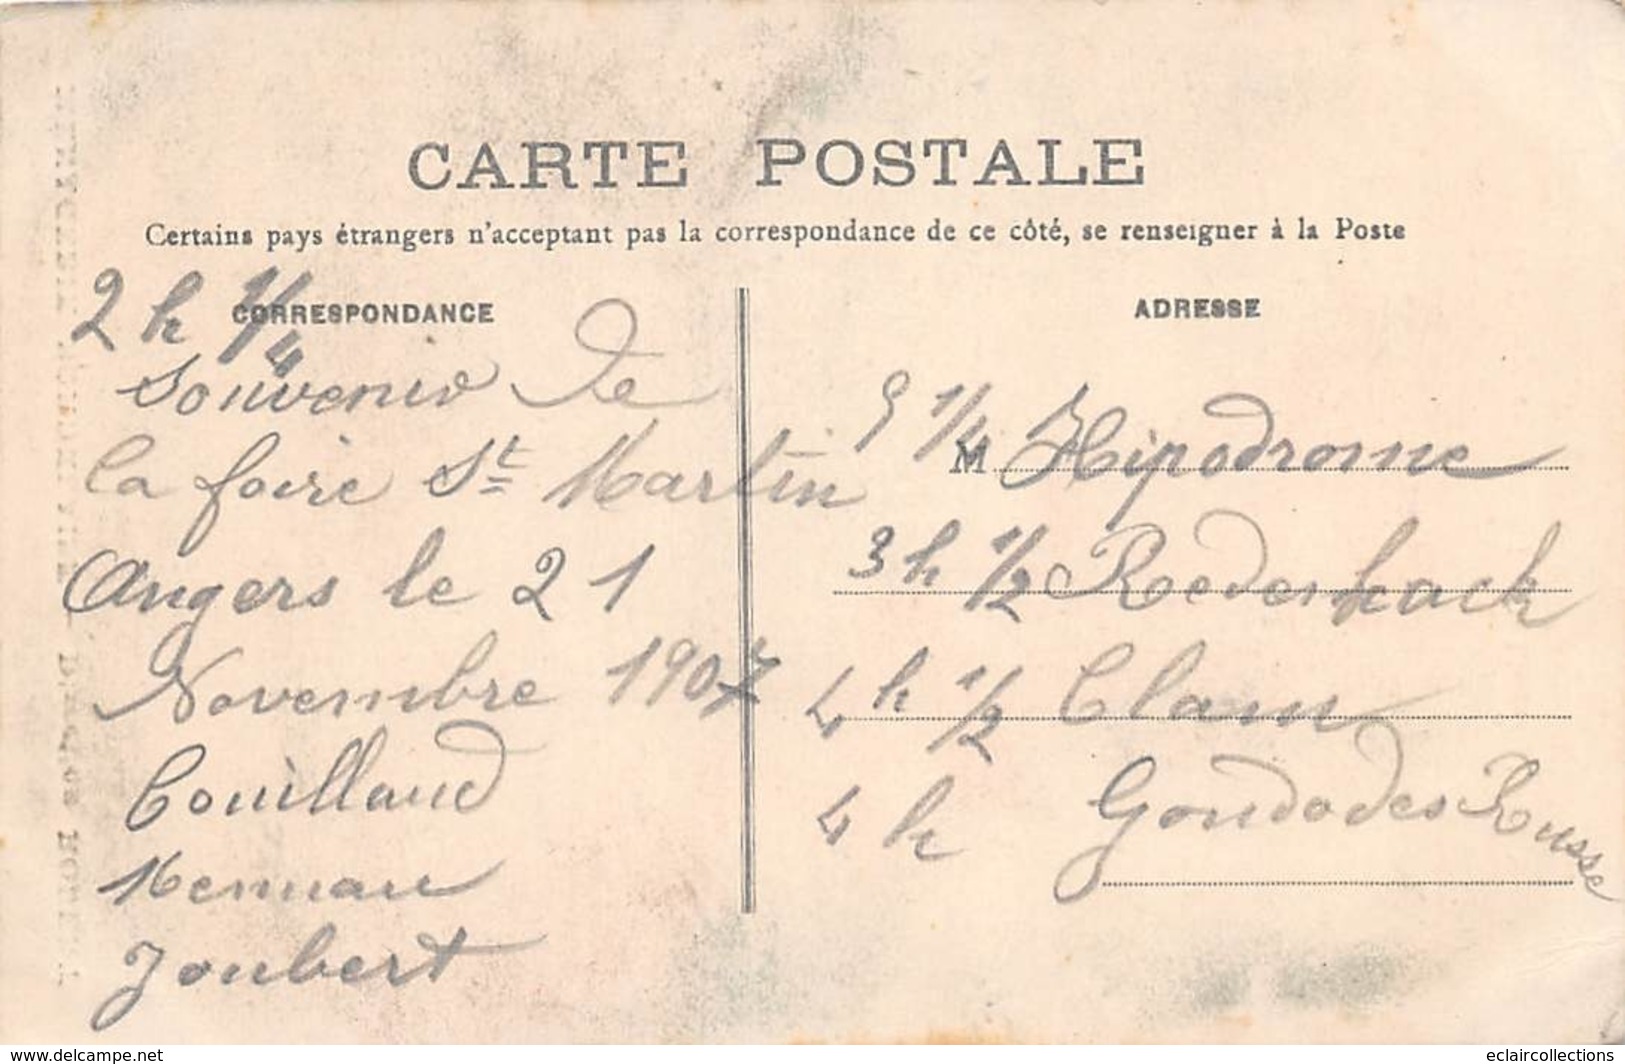 CARTE POSTALE
Certains pays étrangers n'acceptant pas la correspondance de ce côté, se renseigner à la Poste
CORRESPONDANCE
2 h 1/4
Souvenir de
la foire St Martin
Angers le 21
Novembre 1907
Couilland
Joubert
ADRESSE
9 1/4 M Hipodrome
3 h 1/2 Rederback
4 h 1/2 Clam
4 h Gondodes Russe
www.delcampe.net
eclaircollections